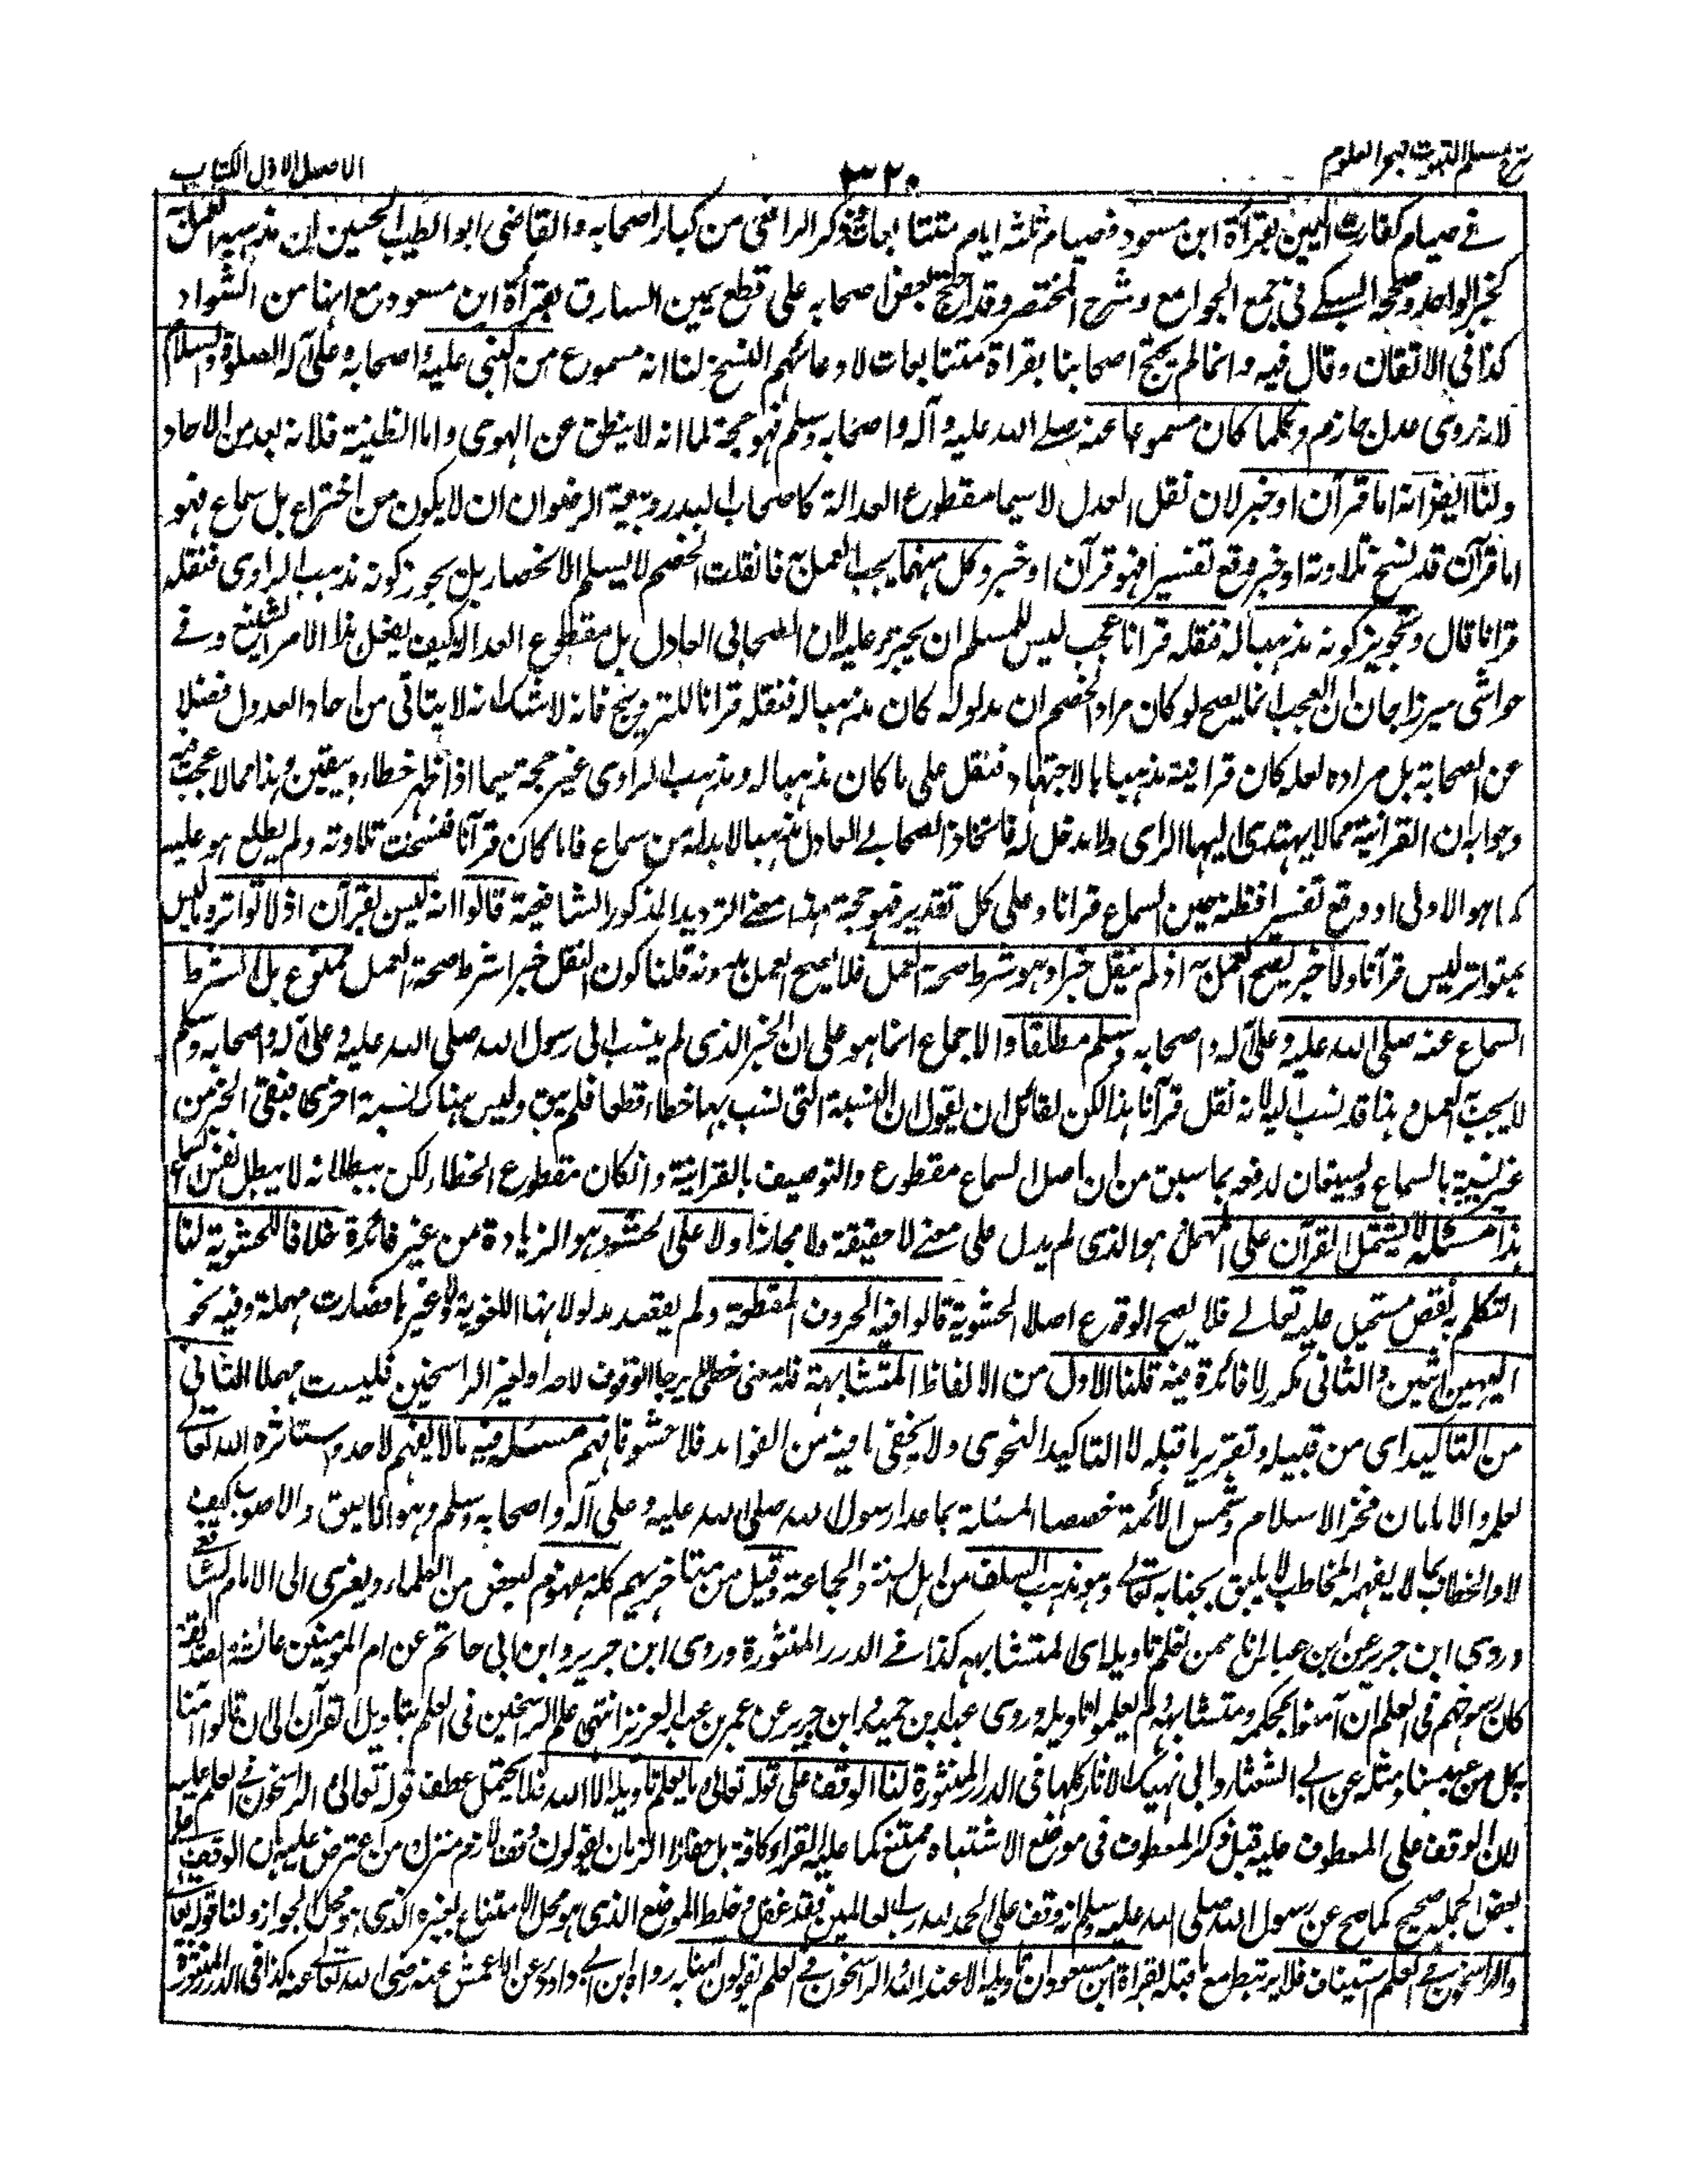 شرح مسلم الثبوت لبحر العلوم
٣٢٠
الاصل الاول الكتاب
في صيام كفارة اليمين بقراءة ابن مسعود فصيام ثلثة ايام متتابعات فذكر الرافعى من كبار اصحابه والقاضى ابو الطيب الحسين ان مذهبه العمل به
كخبر الواحد وصححه السبكے فى جمع الجوامع وشرح المختصر وقد احتج بعض اصحابه على قطع يمين السارق بقراءة ابن مسعود مع انها من الشواذ
كذا فى الاتقان وقال فيه وانما لم يحتج اصحابنا بقراءة متتابعات لادعائهم النسخ لنا انه مسموع من النبى عليه واصحابه وعلى آله الصلوة والسلام
لانه روى عدل جازم وكلما كان مسموعا عنه صلے الله عليه وآله واصحابه وسلم فهو حجة لما انه لا ينطق عن الهوى واما الظنية فلانه بعد من الاحاد
ولنا ايضا انه اما قرآن او خبر لان نقل العدل لا سيما مقطوع العدالة كاصحاب البدر وبيعة الرضوان ان لا يكون من اختراع بل سماع فهو
اما قرآن قد نسخ تلاوته او خبر وقع تفسيرا فهو قرآن او خبر وكل منهما يجب العمل به فانقلت الخصم لا يسلم الانحصار بل يجوز كونه مذهب الراوى فنقله
قرانا قال وتجويز كونه مذهبا له فنقله قرانا عجب ليس للمسلم ان يجترء عليه لان الصحابى العادل بل مقطوع العدالة كيف يفعل هذا الامر الشنيع وفے
حواشى ميرزا جان ان العجب انما يصح لو كان مراد الخصم ان مدلوله كان مذهبا له فنقله قرانا للترويج فانه لا شك انه لا يتاتى من احاد العدول فضلا
عن الصحابة بل مراده لعله كان قرانية مذهبا بالاجتهاد فنقل على ما كان مذهبا له ومذهب الراوى غير حجة سيما اذا ظهر خطاءه بيقين وهذا مما لا عجب فيه
وجوابه ان القرانية مما لا يهتدى اليها الراى ولا مدخل له فاتخاذ الصحابے العادل مذهبا لابد له من سماع فاما كان قرآنا فنسخت تلاوته ولم يطلع هو عليه
كما هو الاولى او وقع تفسيرا فظنه حين السماع قرانا وعلى كل تقدير فهو حجة هذا معنے الترديد المذكور الشافعية قالوا انه ليس بقرآن اذ لا تواتر وما ليس
بمتواتر ليس قرآنا ولا خبر يصح العمل به اذ لم ينقل خبرا وهو شرط صحة العمل فلا يصح العمل بدونه قلنا كون النقل خبرا شرط صحة العمل ممنوع بل الشرط
السماع عنه صلى الله عليه وعلى آله واصحابه وسلم مطلقا والاجماع انما هو على ان الخبر الذى لم ينسب الى رسول الله صلى الله عليه وعلى آله واصحابه وسلم
لا يجب العمل به وهذا قد نسب اليه لانه نقل قرآنا هذا لكن لقائل ان يقول ان النسبة التى نسب بها خطاء قطعا فلم يبق وليس هناك نسبة اخرى فبقى الخبر من
غير نسبة بالسماع وسيعان لدفعه بما سبق من ان اصل السماع مقطوع والتوصيف بالقرانية وان كان مقطوع الخطاء لكن ببطلانه لا يبطل نفس السماع
هذا مسئلة لا يشتمل القرآن على المهمل هو الذى لم يدل على معنے لا حقيقة ولا مجازا ولا على الحشو هو الزيادة من غير فائدة خلافا للحشوية لنا
التكلم به نقص مستحيل عليه تعالے فلا يصح الوقوع اصلا الحشوية قالوا فيه الحروف المقطعة ولم يقصد مدلولاتها اللغوية ولا غيرها فصارت مهملة وفيه نحو
الهين اثنين والثانى مكرر لا فائدة فيه قلنا الاول من الالفاظ المتشابهة فله معنى خطے يرجا الوقوف لاحد او لغير الراسخين فليست مهملا الثانى
من التاكيد اى من قبيله وتقرير ما قبله لا التاكيد النحوى ولا يخفى ما فيه من الفوائد فلا حشو فافهم مسئلة فيه ما لا يفهم لاحد واستاثره الله تعالے
لعلمه والامامان فخر الاسلام وشمس الائمة خصصا المسئلة بما عدا رسول الله صلى الله عليه وعلى آله واصحابه وسلم وهو الاليق والاصوب كيف
لا والخطاب بما لا يفهمه المخاطب لا يليق بجنابه تعالے وهو مذهب السلف من اهل السنة والجماعة وقيل من متاخريهم كله مفهوم لبعض من العلماء ويعزى الى الامام الشافعى
وروى ابن جرير عن ابن عباس انا ممن نعلم تاويله اى المتشابه كذا فے الدرر المنثورة وروى ابن جرير وابن ابى حاتم عن ام المومنين عائشة الصديقة
كان رسوخهم فى العلم ان آمنوا بمحكمه ومتشابهه ولم يعلموا تاويله وروى عبد بن حميد وابن جرير عن عمر بن عبد العزيز انتهى علم الراسخين فى العلم بتاويل القرآن الى ان قالوا آمنا
به كل من عند ربنا ومثله عن ابے الشعثاء وابى نهيك الاثار كلها فى الدرر المنثورة لنا الوقف على قوله تعالى وما يعلم تاويله الا الله فلا يحتمل عطف قوله تعالى والراسخون فے العلم عليه
لان الوقف على المعطوف عليه قبل ذكر المعطوف فى موضع الاشتباه ممتنع كما عليه القراء كافة بل حفاظ الزمان يقولون وقفا لازم منزل من اعترض عليه بان الوقف على
بعض الجملة صحيح كما صح عن رسول الله صلى الله عليه وسلم انه وقف على الحمد لله رب العالمين فقد غفل وخلط الموضع الذى هو محل الامتناع بغيره الذى هو محل الجواز ولنا قوله تعالے
والراسخون فے العلم استيناف فلا يرتبط مع ما قبله لقراءة ابن مسعود وان تاويله الا عند الله والراسخون فے العلم يقولون آمنا به رواه ابن ابے داود عن الاعمش عنه رضى الله تعالے عنه كذا فى الدرر المنثورة